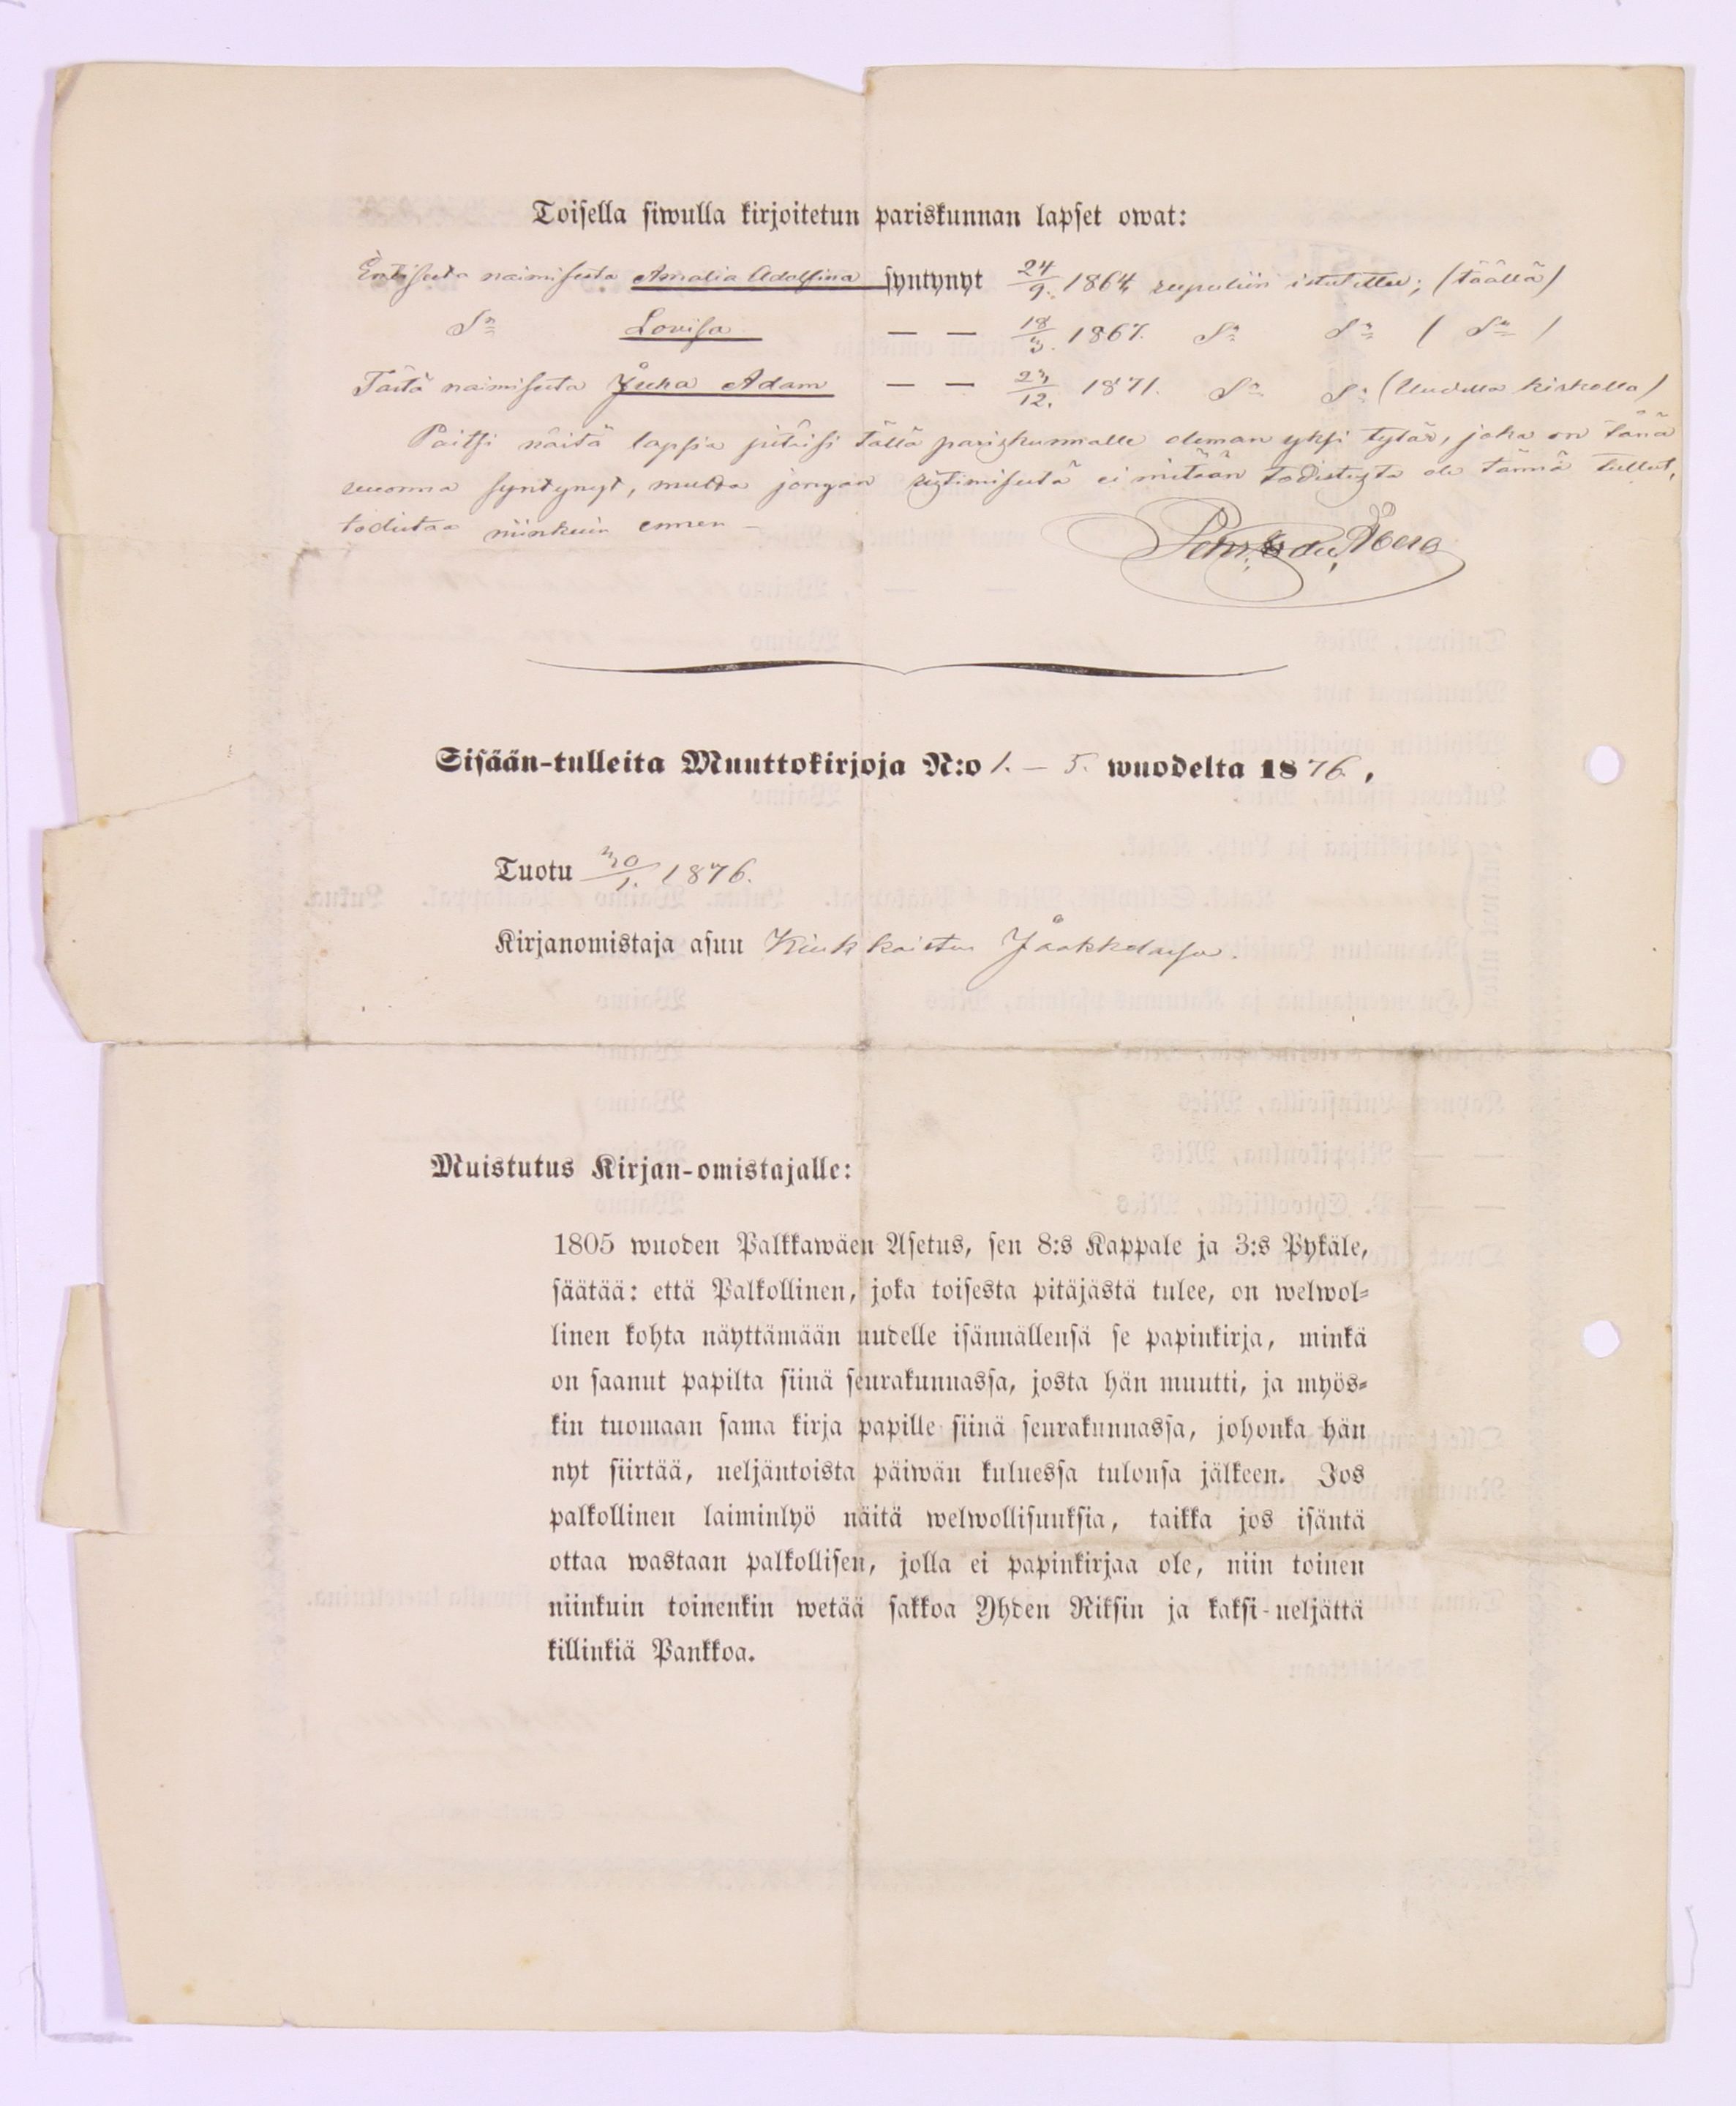 Toisella siwulla kirjoitetun pariskunnan lapset owat:
Entisestä naimisesta Amalia Adolfina syntynyt 24/9. 1864, rupuliin istutettu; (täällä)
Dn Lovisa — — 18/3. 1867. Dn Dn ( Dn )
Tästä naimisesta Juha Adam — — 23/12. 1871. Dn Dn (Uudella kirkolla)
Paitsi näitä lapsia pitäisi tällä pariskunnalle oleman yksi tytär, joka on tänä
vuonna syntynyt, mutta jongan ristimisestä ei mitään todistusta ole tänne tullut,
todistaa niinkuin ennen — Åberg
Sisään-tulleita Muuttokirjoja N:o 1. — 5. wuodelta 1876,
Tuotu 30/1. 1876.
Kirjanomistaja asuu Jaakkolassa.
Muistutus Kirjan-omistajalle:
1805 wuoden Palkkawäen Asetus, sen 8:s Kappale ja 3:s Pykäle,
säätää: että Palkollinen, joka toisesta pitäjästä tulee, on welwol-
linen kohta näyttämään uudelle isännällensä se papinkirja, minkä
on saanut papilta siinä seurakunnassa, josta hän muutti, ja myös-
kin tuomaan sama kirja papille siinä seurakunnassa, johonka hän
nyt siirtää, neljäntoista päiwän kuluessa tulonsa jälkeen. Jos
palkollinen laiminlyö näitä welwollisuuksia, taikka jos isäntä
ottaa wastaan palkollisen, jolla ei papinkirjaa ole, niin toinen
niinkuin toinenkin wetää sakkoa Yhden Riksin ja kaksi-neljättä
killinkiä Pankkoa.